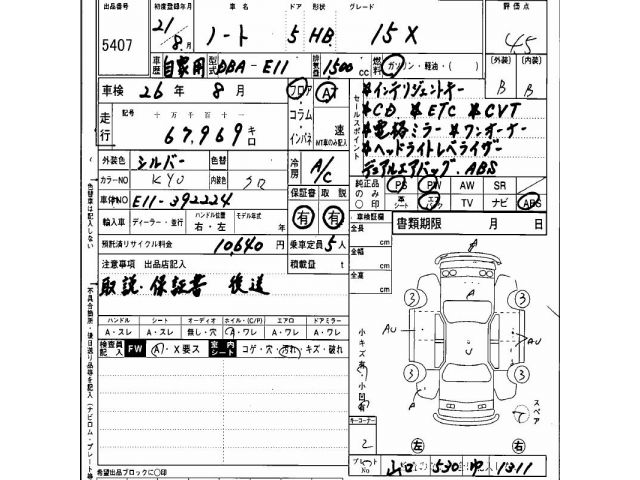 出品番号 初度登録年月 車名 ドア 形状 グレード 評価点
5407 21/8月 ノート 5 HB 15X 4.5
車歴 自家用 型式 DBA-E11 排気量 1500cc 燃料 ガソリン・軽油・( ) [外装] B [内装] B
車検 26年 8月 フロア・コラム・インパネ AT 速 MT車のみ記入
走行 記号 十万千百十 67,969 キロ
セールスポイント
*インテリジェントキー
*CD *ETC *CVT
*電格ミラー *ワンオーナー
*ヘッドライトレベライザー
デュアルエアバッグ. ABS
外装色 シルバー 色替 冷房 A/C
カラーNO KY0 内装色 クロ
純正品のみ〇印 PS PW AW SR
本シート エアB TV ナビ ABS
車体NO E11-392224 保証書 有 取説 有
輸入車 ディーラー・並行 ハンドル位置 右・左 モデル年式 年
車検証欄 全長 cm 全幅 cm 全高 cm
書類期限 月 日
預託済リサイクル料金 10,640円 乗車定員 5人
注意事項 出品店記入 積載量 t
取説・保証書 後送
ハンドル シート オーディオ ホイル・(C/P) エアロ ドアミラー
A・スレ A・スレ 無し・穴 A・ワレ A・ワレ A・ワレ
検査員記入 FW A・X要ス 室内シート コゲ・穴・汚れ・キズ・破れ
色替車は記入しない
小キズ有 小凹有
A
3 3
A
AU U AU
3 3
A
スペア
左 右
キーコーナー
2
プレートNo 山口 530 ゆ 1311
希望出品ブロックに〇印